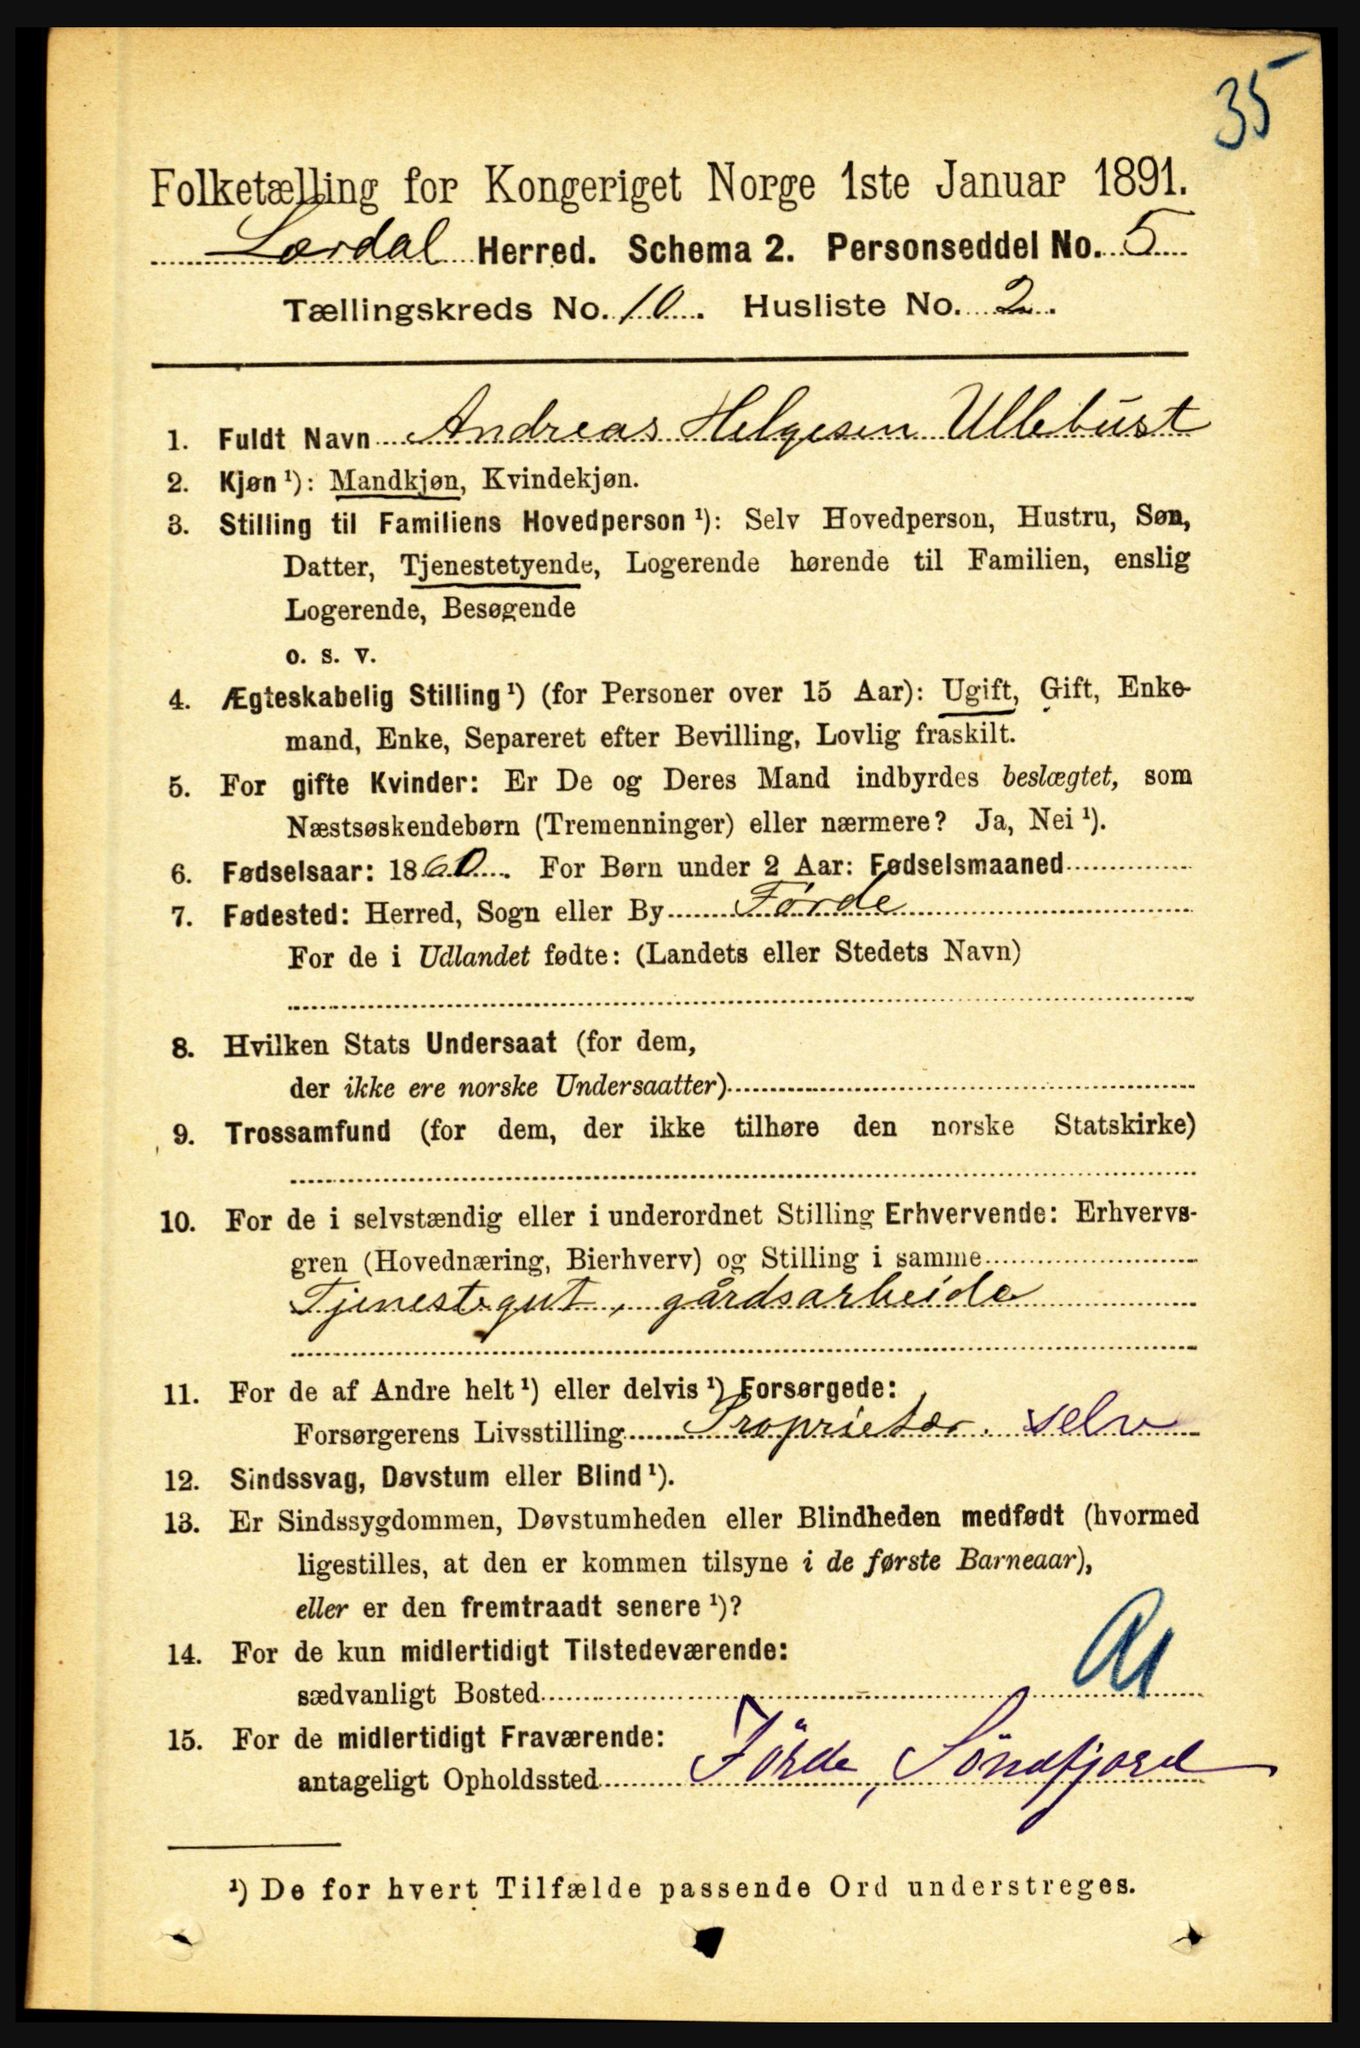 35
Folketælling for Kongeriget Norge 1ste Januar 1891.
Lærdal Herred. Schema 2. Personseddel No. 5
Tællingskreds No. 10. Husliste No. 2.
1. Fuldt Navn Andreas Helgesen Ullebust
2. Kjøn ¹): Mandkjøn, Kvindekjøn.
3. Stilling til Familiens Hovedperson ¹): Selv Hovedperson, Hustru, Søn,
Datter, Tjenestetyende, Logerende hørende til Familien, enslig
Logerende, Besøgende
o. s. v.
4. Ægteskabelig Stilling ¹) (for Personer over 15 Aar): Ugift, Gift, Enke-
mand, Enke, Separeret efter Bevilling, Lovlig fraskilt.
5. For gifte Kvinder: Er De og Deres Mand indbyrdes beslægtet, som
Næstsøskendebørn (Tremenninger) eller nærmere? Ja, Nei ¹).
6. Fødselsaar: 1860. For Børn under 2 Aar: Fødselsmaaned
7. Fødested: Herred, Sogn eller By Førde
For de i Udlandet fødte: (Landets eller Stedets Navn)
8. Hvilken Stats Undersaat (for dem,
der ikke ere norske Undersaatter)
9. Trossamfund (for dem, der ikke tilhøre den norske Statskirke)
10. For de i selvstændig eller i underordnet Stilling Erhvervende: Erhvervs-
gren (Hovednæring, Bierhverv) og Stilling i samme
Tjenestegut, gårdsarbeide
11. For de af Andre helt ¹) eller delvis ¹) Forsørgede:
Forsørgerens Livsstilling Proprietær. selv
12. Sindssvag, Døvstum eller Blind ¹).
13. Er Sindssygdommen, Døvstumheden eller Blindheden medfødt (hvormed
ligestilles, at den er kommen tilsyne i de første Barneaar),
eller er den fremtraadt senere ¹)?
14. For de kun midlertidigt Tilstedeværende:
sædvanligt Bosted
15. For de midlertidigt Fraværende:
antageligt Opholdssted Förde, Söndfjord
¹) De for hvert Tilfælde passende Ord understreges.